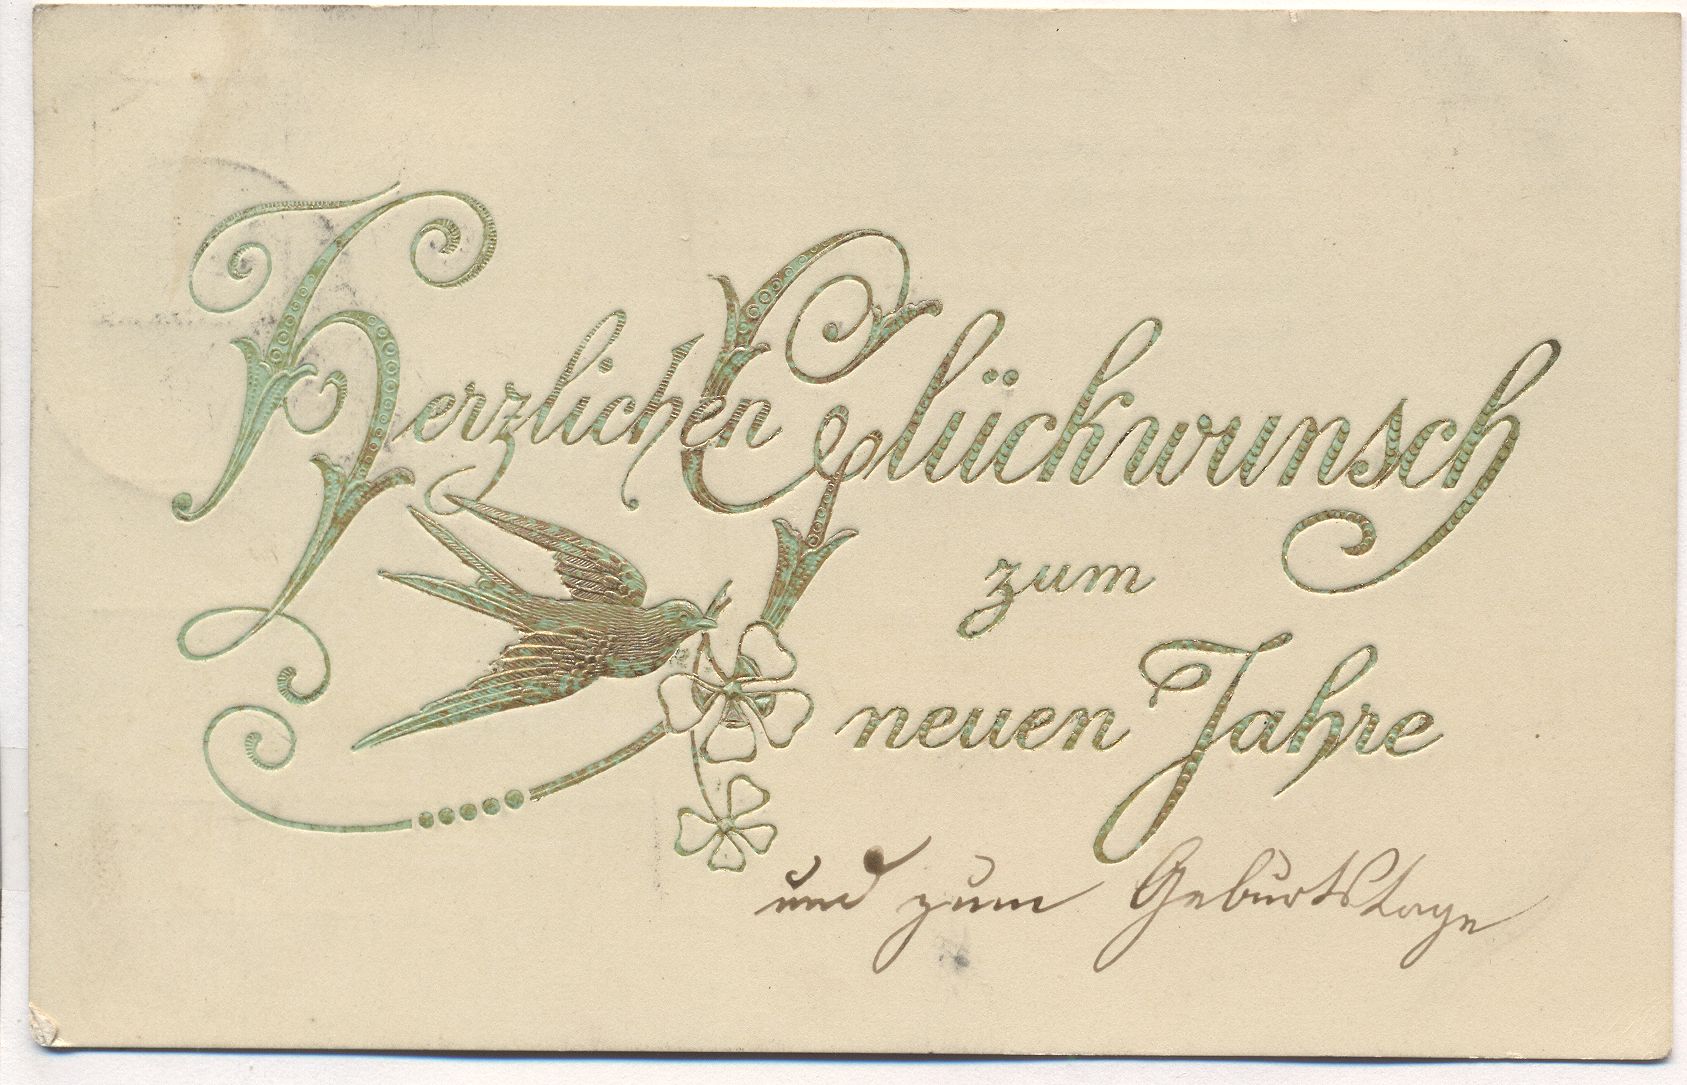 Herzlichen Glückwunsch
zum
neuen Jahre
und zum Geburtstage